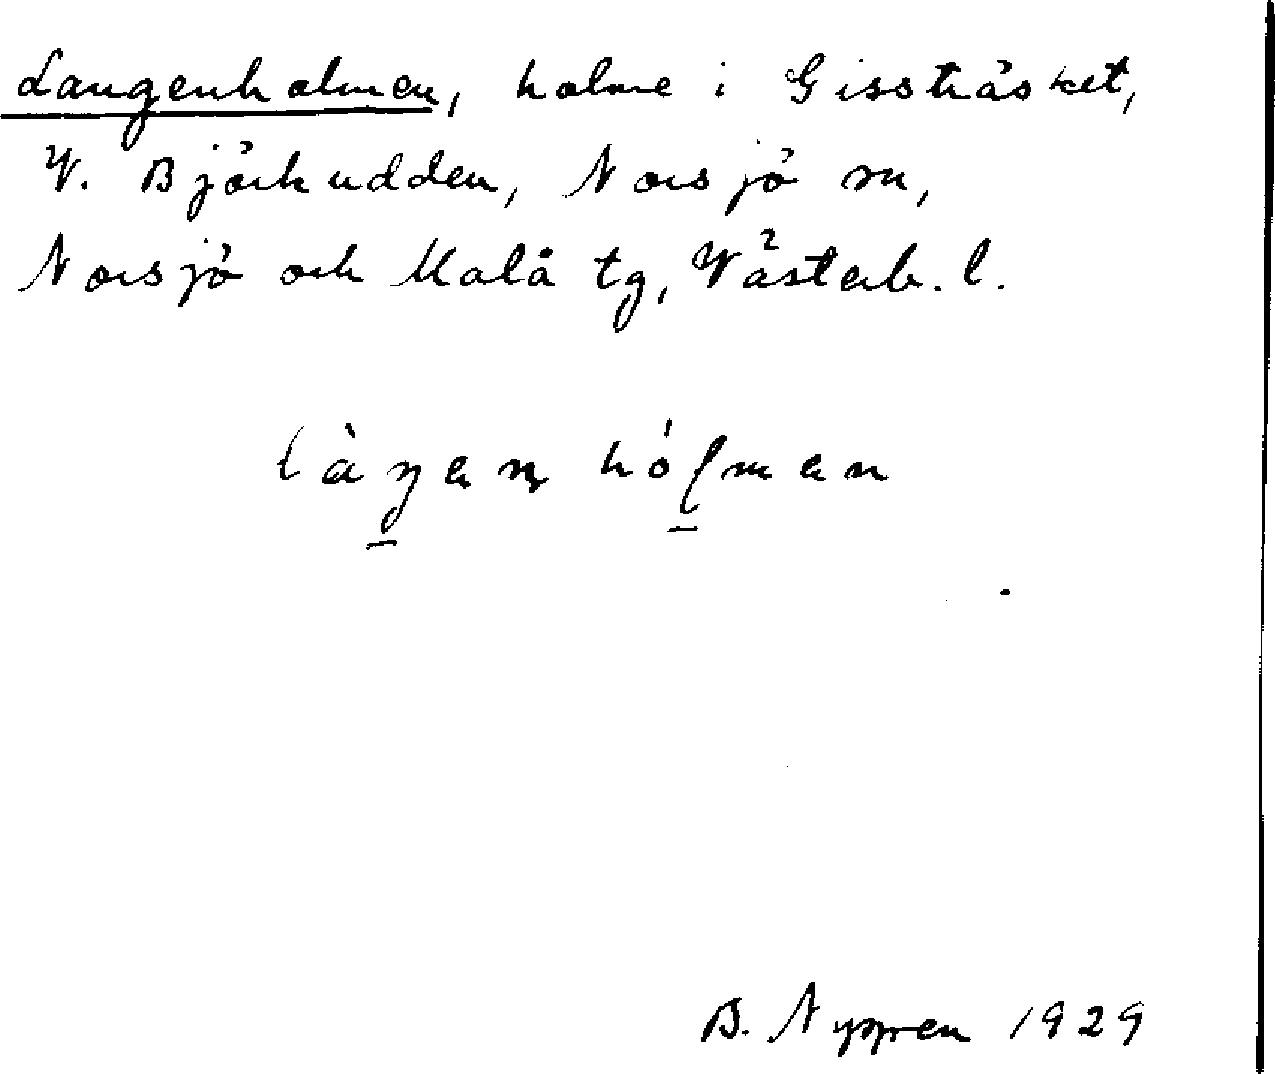 Langenholmen, holme i Gissträsket,
V. Björkudden, Norsjö sn,
Norsjö och Malå tg, Västerb. l.
làŋen hólmen
B. Nyppren 1929